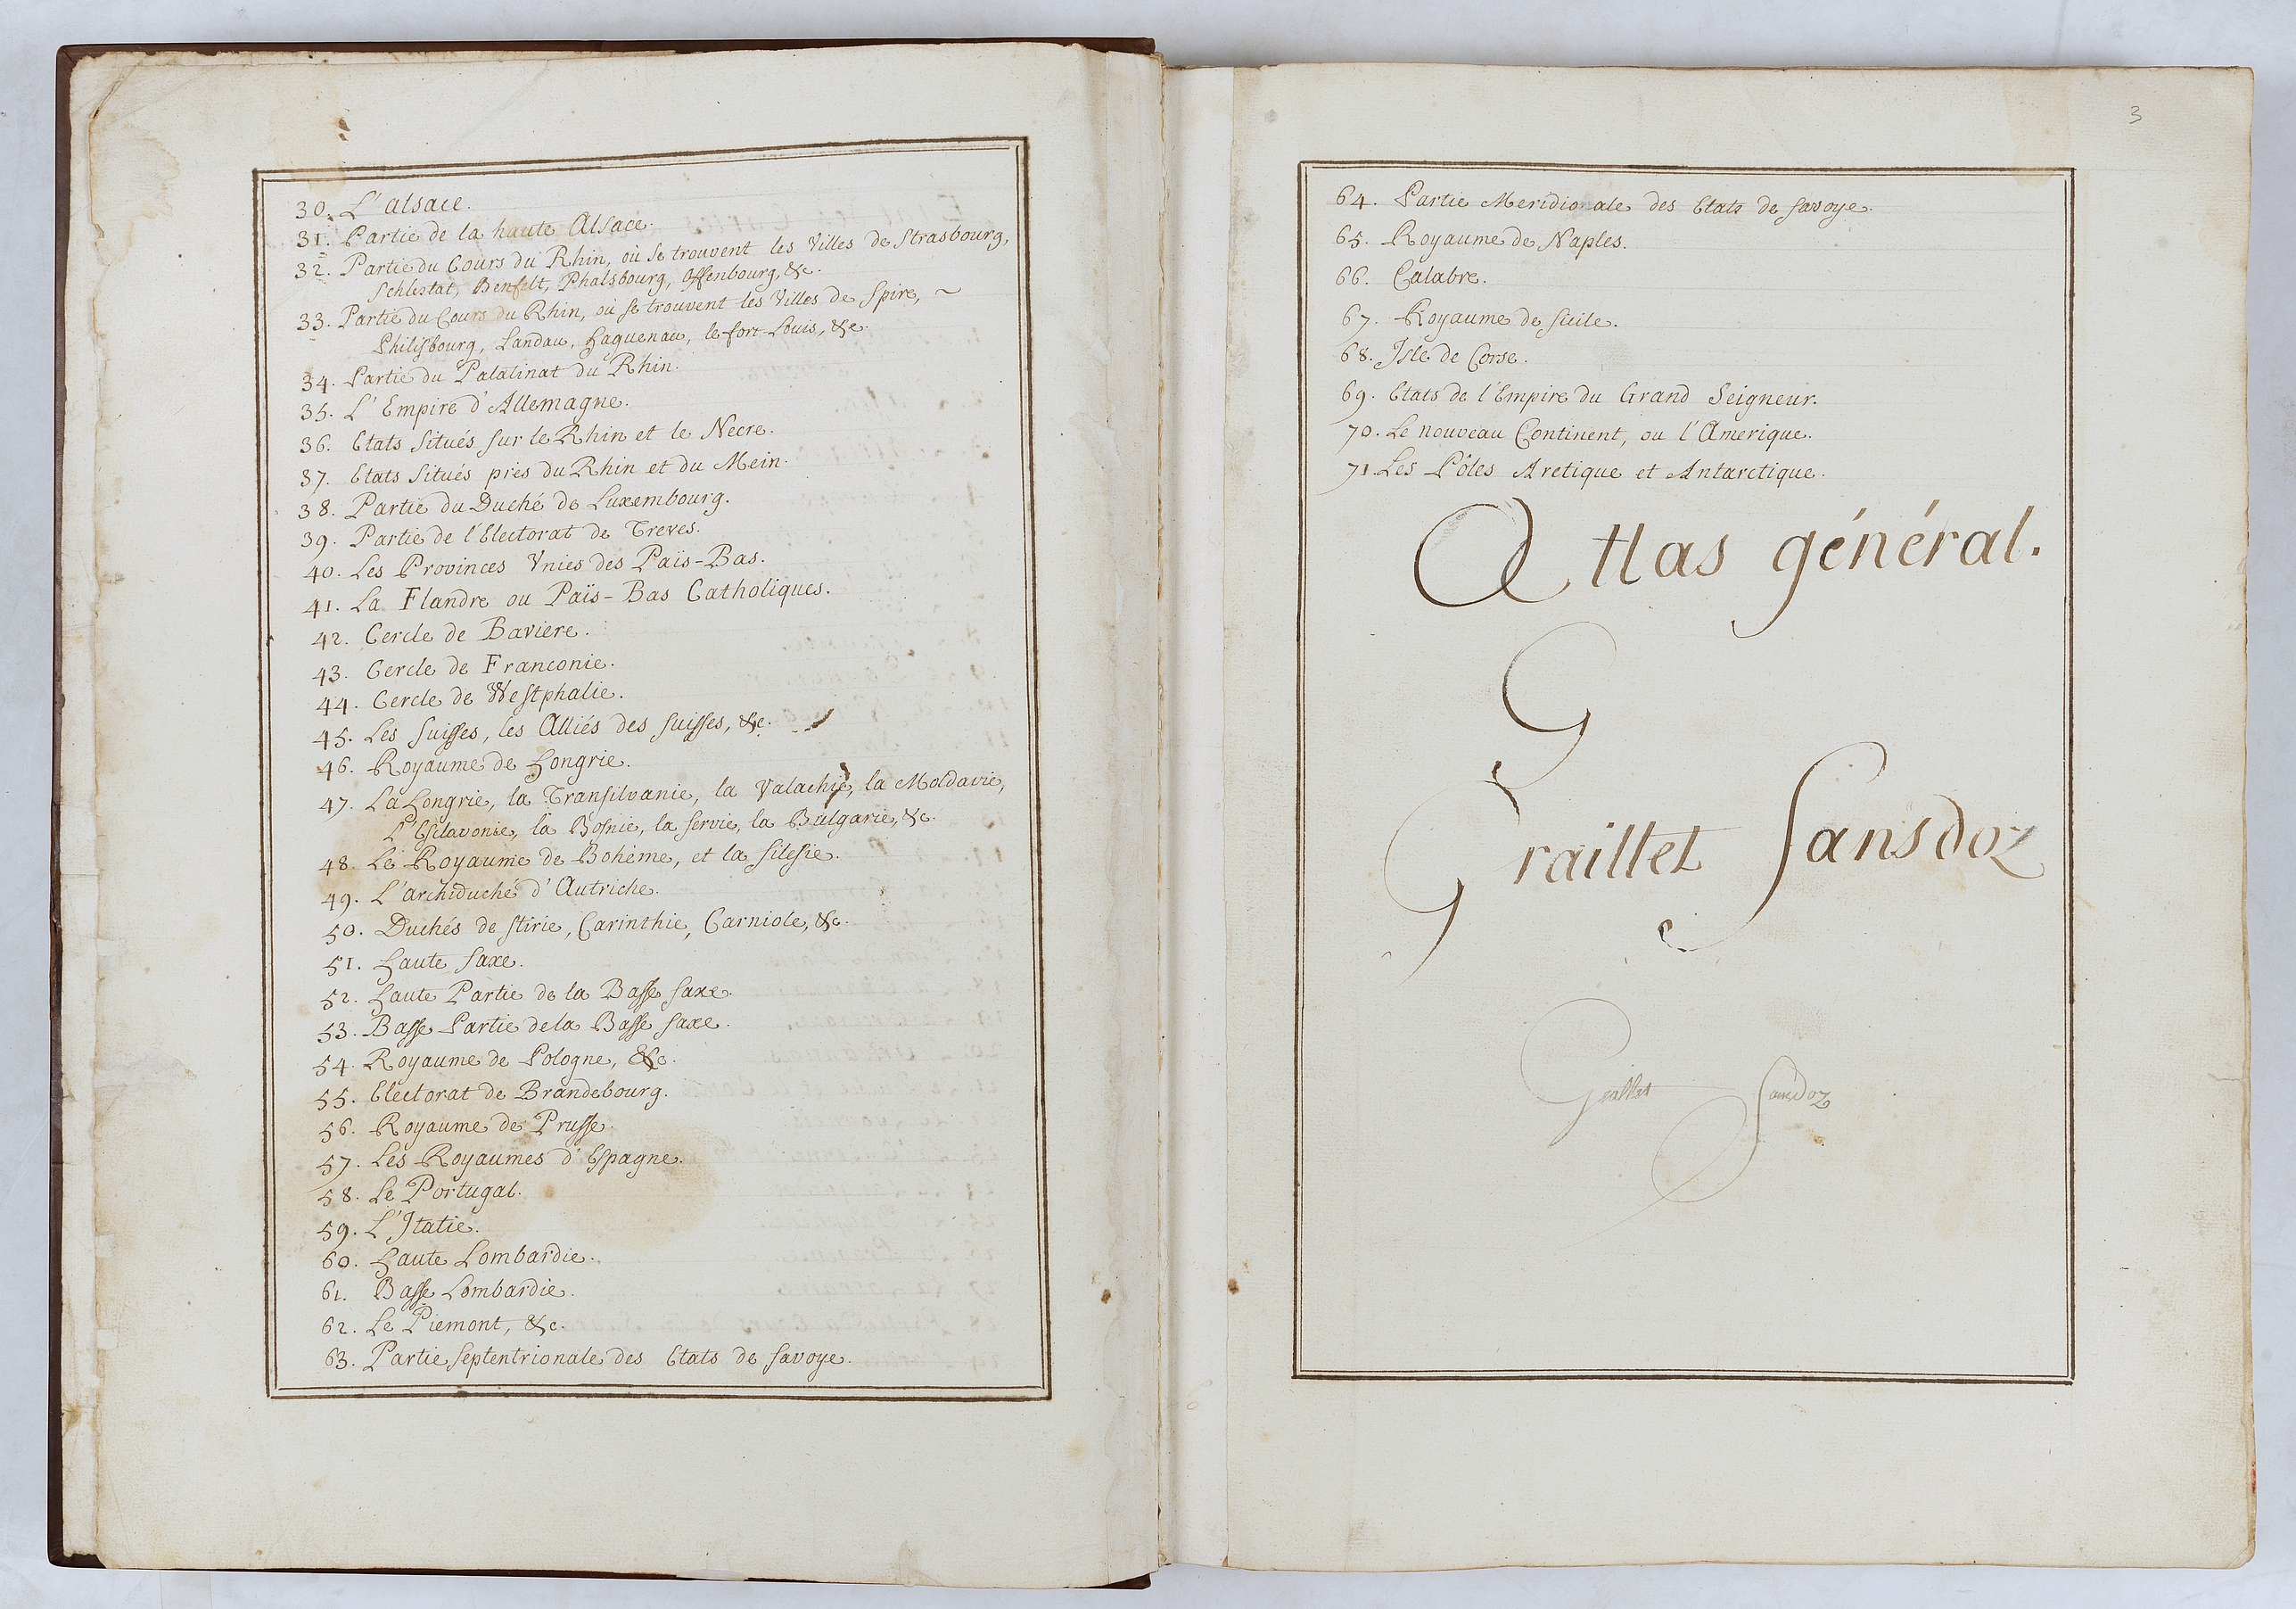 30. L'alsace.
31. Partie de la haute Alsace.
32. Partie du Cours du Rhin, où se trouvent les Villes de Strasbourg,
Schlestat, Benfelt, Phalsbourg, Offenbourg, &c.
33. Partie du Cours du Rhin, où se trouvent les Villes de Spire, ~
Philisbourg, Landau, Haguenau, le fort Louis, &c.
34. Partie du Palatinat du Rhin.
35. L'Empire d'Allemagne.
36. Etats Situés sur le Rhin et le Necre.
37. Etats Situés près du Rhin et du Mein.
38. Partie du Duché de Luxembourg.
39. Partie de l'Electorat de Treves.
40. Les Provinces Vnies des Païs-Bas.
41. La Flandre ou Païs-Bas Catholiques.
42. Cercle de Baviere.
43. Cercle de Franconie.
44. Cercle de Westphalie.
45. Les Suisses, les Alliés des Suisses, &c.
46. Royaume de Hongrie.
47. La Hongrie, la Transilvanie, la Valachie, la Moldavie,
L'Esclavonie, la Bosnie, la Servie, la Bulgarie, &c.
48. Le Royaume de Bohème, et la Silesie.
49. L'archiduché d'Autriche.
50. Duchés de Stirie, Carinthie, Carniole, &c.
51. Haute Saxe.
52. Haute Partie de la Basse Saxe.
53. Basse Partie de la Basse Saxe.
54. Royaume de Pologne, &c.
55. Electorat de Brandebourg.
56. Royaume de Prusse.
57. Les Royaumes d'Espagne.
58. Le Portugal.
59. L'Italie.
60. Haute Lombardie.
61. Basse Lombardie.
62. Le Piemont, &c.
63. Partie Septentrionale des Etats de Savoye.
3
64. Partie Meridionale des Etats de Savoye.
65. Royaume de Naples.
66. Calabre.
67. Royaume de Sicile.
68. Isle de Corse.
69. Etats de l'Empire du Grand Seigneur.
70. Le nouveau Continent, ou l'Amerique.
71. Les Pôles Arctique et Antarctique.
Atlas général.
G
Graillet Sansdoz
Graillet Sansdoz